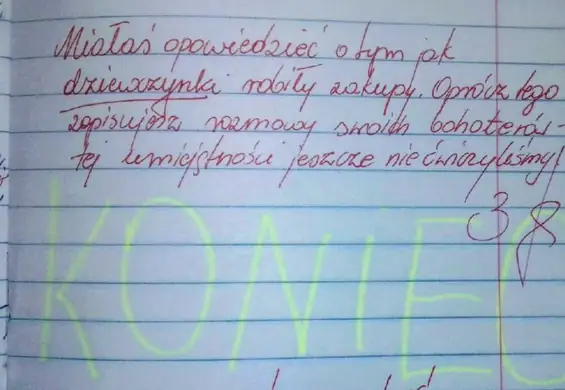 Miałaś opowiedzieć o tym jak
dziewczynki robiły zakupy. Oprócz tego
zapisujesz rozmowy swoich bohaterów -
tej umiejętności jeszcze nie ćwiczyliśmy!
3
KONIEC